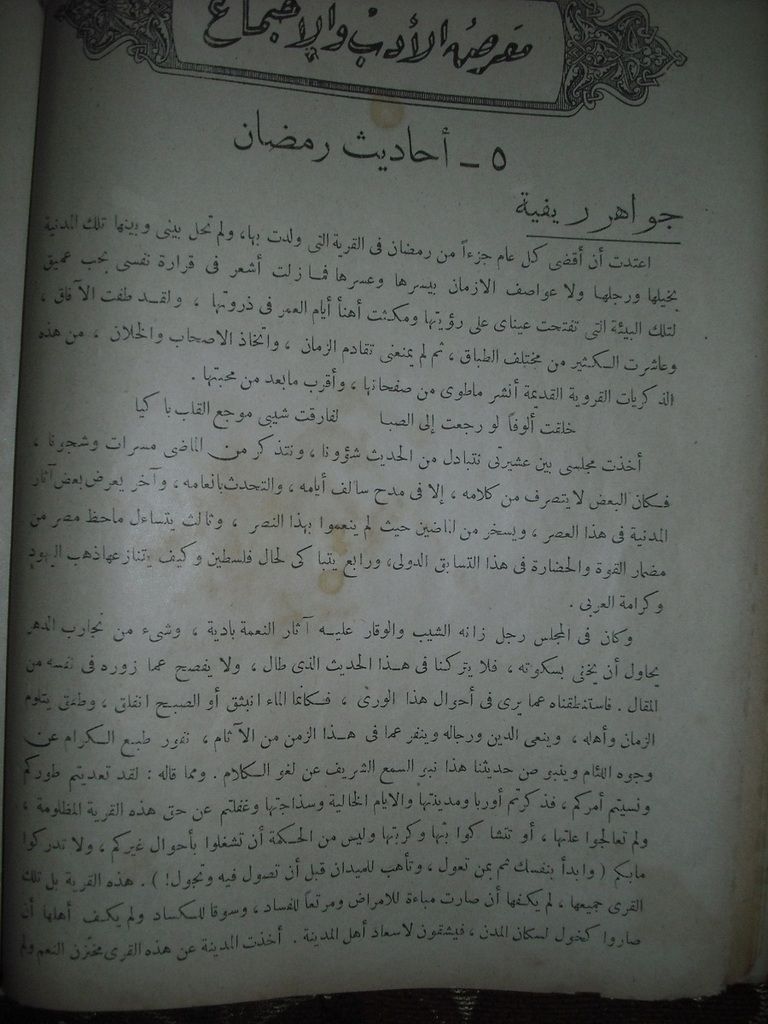 معرض الأدب والاجتماع
٥ - أحاديث رمضان
جواهر ريفية
اعتدت أن أقضى كل عام جزءاً من رمضان فى القرية التى ولدت بها، ولم تحل بينى وبينها تلك المدنية
بخيلها ورجلها ولا عواصف الازمان بيسرها وعسرها فما زلت أشعر فى قرارة نفسى بحب عميق
لتلك البيئة التى تفتحت عيناى على رؤيتها ومكثت أهنأ أيام العمر فى ذروتها ، ولقد طفت الآفاق ،
وعاشرت الكثير من مختلف الطباق ، ثم لم يمنعنى تقادم الزمان ، واتخاذ الاصحاب والخلان ، من هذه
الذكريات القروية القديمة أنشر ماطوى من صفحاتها ، وأقرب مابعد من محبتها .
خلقت ألوفاً لو رجعت إلى الصبا لفارقت شيبى موجع القلب باكيا
أخذت مجلسى بين عشيرتى نتبادل من الحديث شؤونا ، ونتذكر من الماضى مسرات وشجونا ،
فكان البعض لايتصرف من كلامه ، إلا فى مدح سالف أيامه ، والتحدث بانعامه ، وآخر يعرض بعض آثار
المدنية فى هذا العصر ، ويسخر من الماضين حيث لم ينعموا بهذا النصر ، وثالث يتساءل ماحظ مصر من
مضمار القوة والحضارة فى هذا التسابق الدولى، ورابع يتباكى لحال فلسطين وكيف يتنازعها ذهب اليهود
وكرامة العربى .
وكان فى المجلس رجل زانه الشيب والوقار عليه آثار النعمة بادية ، وشىء من تجارب الدهر
يحاول أن يخفى بسكوته ، فلا يتركنا فى هذا الحديث الذى طال ، ولا يفصح عما زوره فى نفسه من
المقال . فاستنطقناه عما يرى فى أحوال هذا الورى ، فكأنما الماء انبثق أو الصبح انفلق ، وطفق يتلوم
الزمان وأهله ، وينعى الدين ورجاله وينفر عما فى هذا الزمن من الآثام ، نفور طبع الكرام عن
وجوه اللئام وينبو عن حديثنا هذا نبو السمع الشريف عن لغو الكلام . ومما قاله : لقد تعديتم طوركم
ونسيتم أمركم ، فذكرتم أوربا ومدينتها والايام الخالية وسذاجتها وغفلتم عن حق هذه القرية المظلومة ،
ولم تعالجوا علتها ، أو تتشاكوا بثها وكربتها وليس من الحكمة أن تشغلوا بأحوال غيركم ، ولا تدركوا
مابكم ( وابدأ بنفسك ثم بمن تعول ، وتأهب للميدان قبل أن تصول فيه وتجول! ) . هذه القرية بل تلك
القرى جميعها ، لم يكفها أن صارت مباءة للامراض ومرتعاً للفساد ، وسوقا للكساد ولم يكف أهلها أن
صاروا كخول لسكان المدن ، فيشقون لاسعاد أهل المدينة . أخذت المدينة عن هذه القرى مختزن النعم ولم